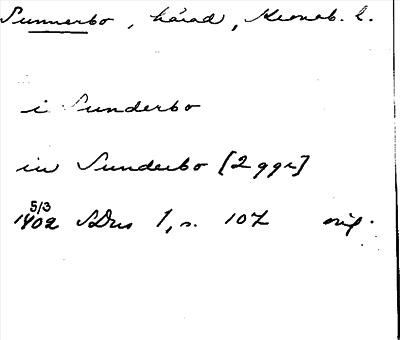 Sunnerbo, härad, Kronob. l.
i Sunderbo
in Sunderbo [2 ggr]
5/3
1402 SDns 1, s. 107 orig.